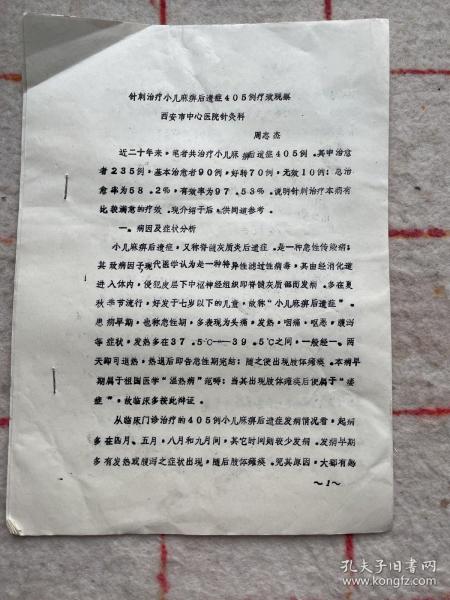 针刺治疗小儿麻痹后遗症405例疗效观察
西安市中心医院针灸科
周志杰
近二十年来,笔者共治疗小儿麻痹后遗症405例.其中治愈
者235例,基本治愈者90例,好转70例,无效10例;总治
愈率为58.2%,有效率为97.53%.说明针刺治疗本病有
比较满意的疗效.现介绍于后,供同道参考.
一、病因及症状分析
小儿麻痹后遗症,又称脊髓灰质炎后遗症.是一种急性传染病;
其致病因子现代医学认为是一种特异性滤过性病毒,其由经消化道
进入体内,侵犯皮层下中枢神经组织即脊髓灰质部而发病.多在夏
秋季节流行,好发于七岁以下的儿童,故称"小儿麻痹后遗症".
患病早期,也称急性期,多表现为头痛,发热,咽痛,呕恶,腹泻
等症状,发热多在37.5℃——39.5℃之间,一般经一、两
天即可退热,热退后即告急性期完结;随之便出现肢体瘫痪.本病早
期属于祖国医学"温热病"范畴;当其出现肢体瘫痪后便属于"痿
症",故临床多按此辩证.
从临床门诊治疗的405例小儿麻痹后遗症发病情况看,起病
多在四月、五月,八月和九月间,其它时间则较少发病.发病早期
多有发热或腹泻之症状出现,随后肢体瘫痪.究其原因,大都有感
~1~
孔夫子旧书网
www.kongfz.com